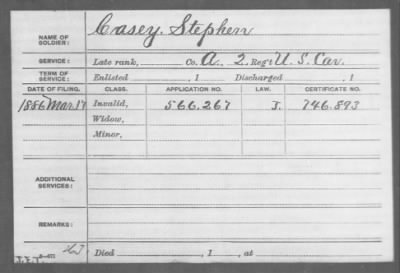 NAME OF SOLDIER: Casey, Stephen
SERVICE: Late rank, Co. A. 2. Reg't U. S. Cav.
TERM OF SERVICE: Enlisted , 1 Discharged , 1
DATE OF FILING. CLASS. APPLICATION NO. LAW. CERTIFICATE NO.
1886 Mar. 17 Invalid, 566.267 J. 746.893
Widow,
Minor,
ADDITIONAL SERVICES:
REMARKS:
Died , 1 , at